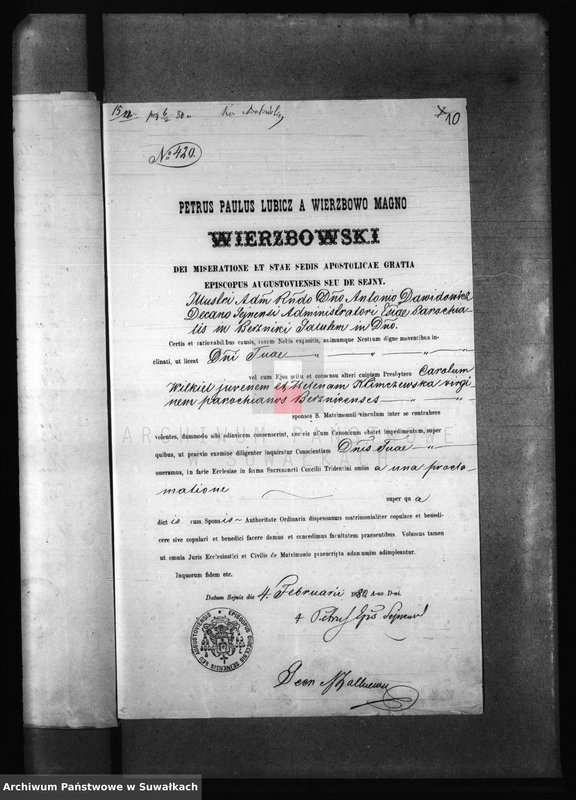 15/II prz 6/2 80 r.
10
No 420.
PETRUS PAULUS LUBICZ A WIERZBOWO MAGNO
WIERZBOWSKI
DEI MISERATIONE ET STAE SEDIS APOSTOLICAE GRATIA
EPISCOPUS AUGUSTOVIENSIS SEU DE SEJNY.
Illustri Adm̄ Rn̄do Dn̄o Antonio Dawidowicz
Decano Sejnensi Administratori Eccl̄ae Parochia-
lis in Berzniki Salutem in Dn̄o.
Certis et rationabilibus causis, coram Nobis expositis, animumque Nostrum digne moventibus in-
clinati, ut liceat Dn̄i Tuae
vel cum Ejus scitu et consensu alteri cuipiam Presbytero Carolum
Wilkiel juvenem et Helenam Klimczewska virgi
nem parochianos Berznicenses
sponsos S. Matrimonii vinculum inter se contrahere
volentes, dummodo sibi adinvicem consenserint, nec eis ullum Canonicum obstet impedimentum, super
quibus, ut praevio examine diligenter inquirat Conscientiam Dn̄is Tuae
oneramus, in facie Ecclesiae in forma Sacrosancti Concilii Tridentini omiss a una procla-
matione
super qu a
dict is cum Spons is Authoritate Ordinaria dispensamus matrimonialiter copulare et benedi-
cere sive copulari et benedici facere damus et concedimus facultatem praesentibus. Volumus tamen
ut omnia Juris Ecclesiastici et Civilis de Matrimonio praescripta adamussim adimpleantur.
Inquorum fidem etc.
Datum Sejnis die 4 Februarii 1880 A-no D-ni.
† Petrus Eps Sejnen
EPISCOPUS DIOECESIS SEJNENSIS SEU AUGUSTOVIENSIS
ARCHIWUM PAŃSTWOWE
W SUWAŁKACH
Archiwum Państwowe w Suwałkach